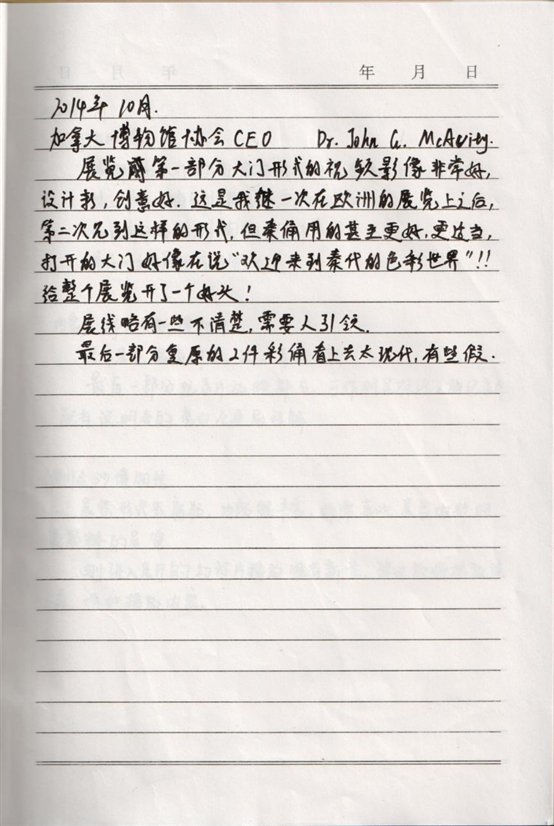 年 月 日
2014年10月.
加拿大博物馆协会CEO Dr. John G. McAvity.
展览第一部分大门形式的视频影像非常好,
设计新,创意好.这是我继一次在欧洲的展览上之后,
第二次见到这样的形式,但秦俑用的甚至更好,更适当,
打开的大门好像在说"欢迎来到秦代的色彩世界"!!
给整个展览开了一个好头!
展线略有一些不清楚,需要人引领.
最后一部分复原的2件彩俑看上去太现代,有些假.